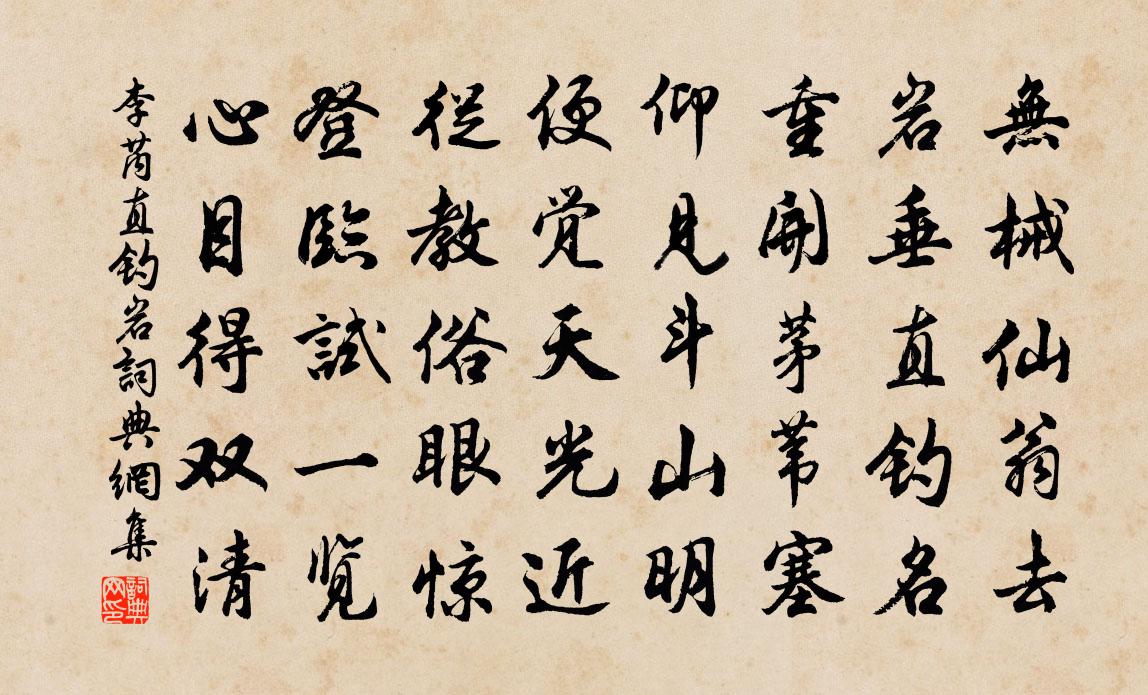 無械仙翁去
岩垂直钓名
重開茅苇塞
仰见斗山明
便觉天光近
從教俗眼惊
登臨試一览
心目得双清
李芮直钓岩詞典網集
詞典网印